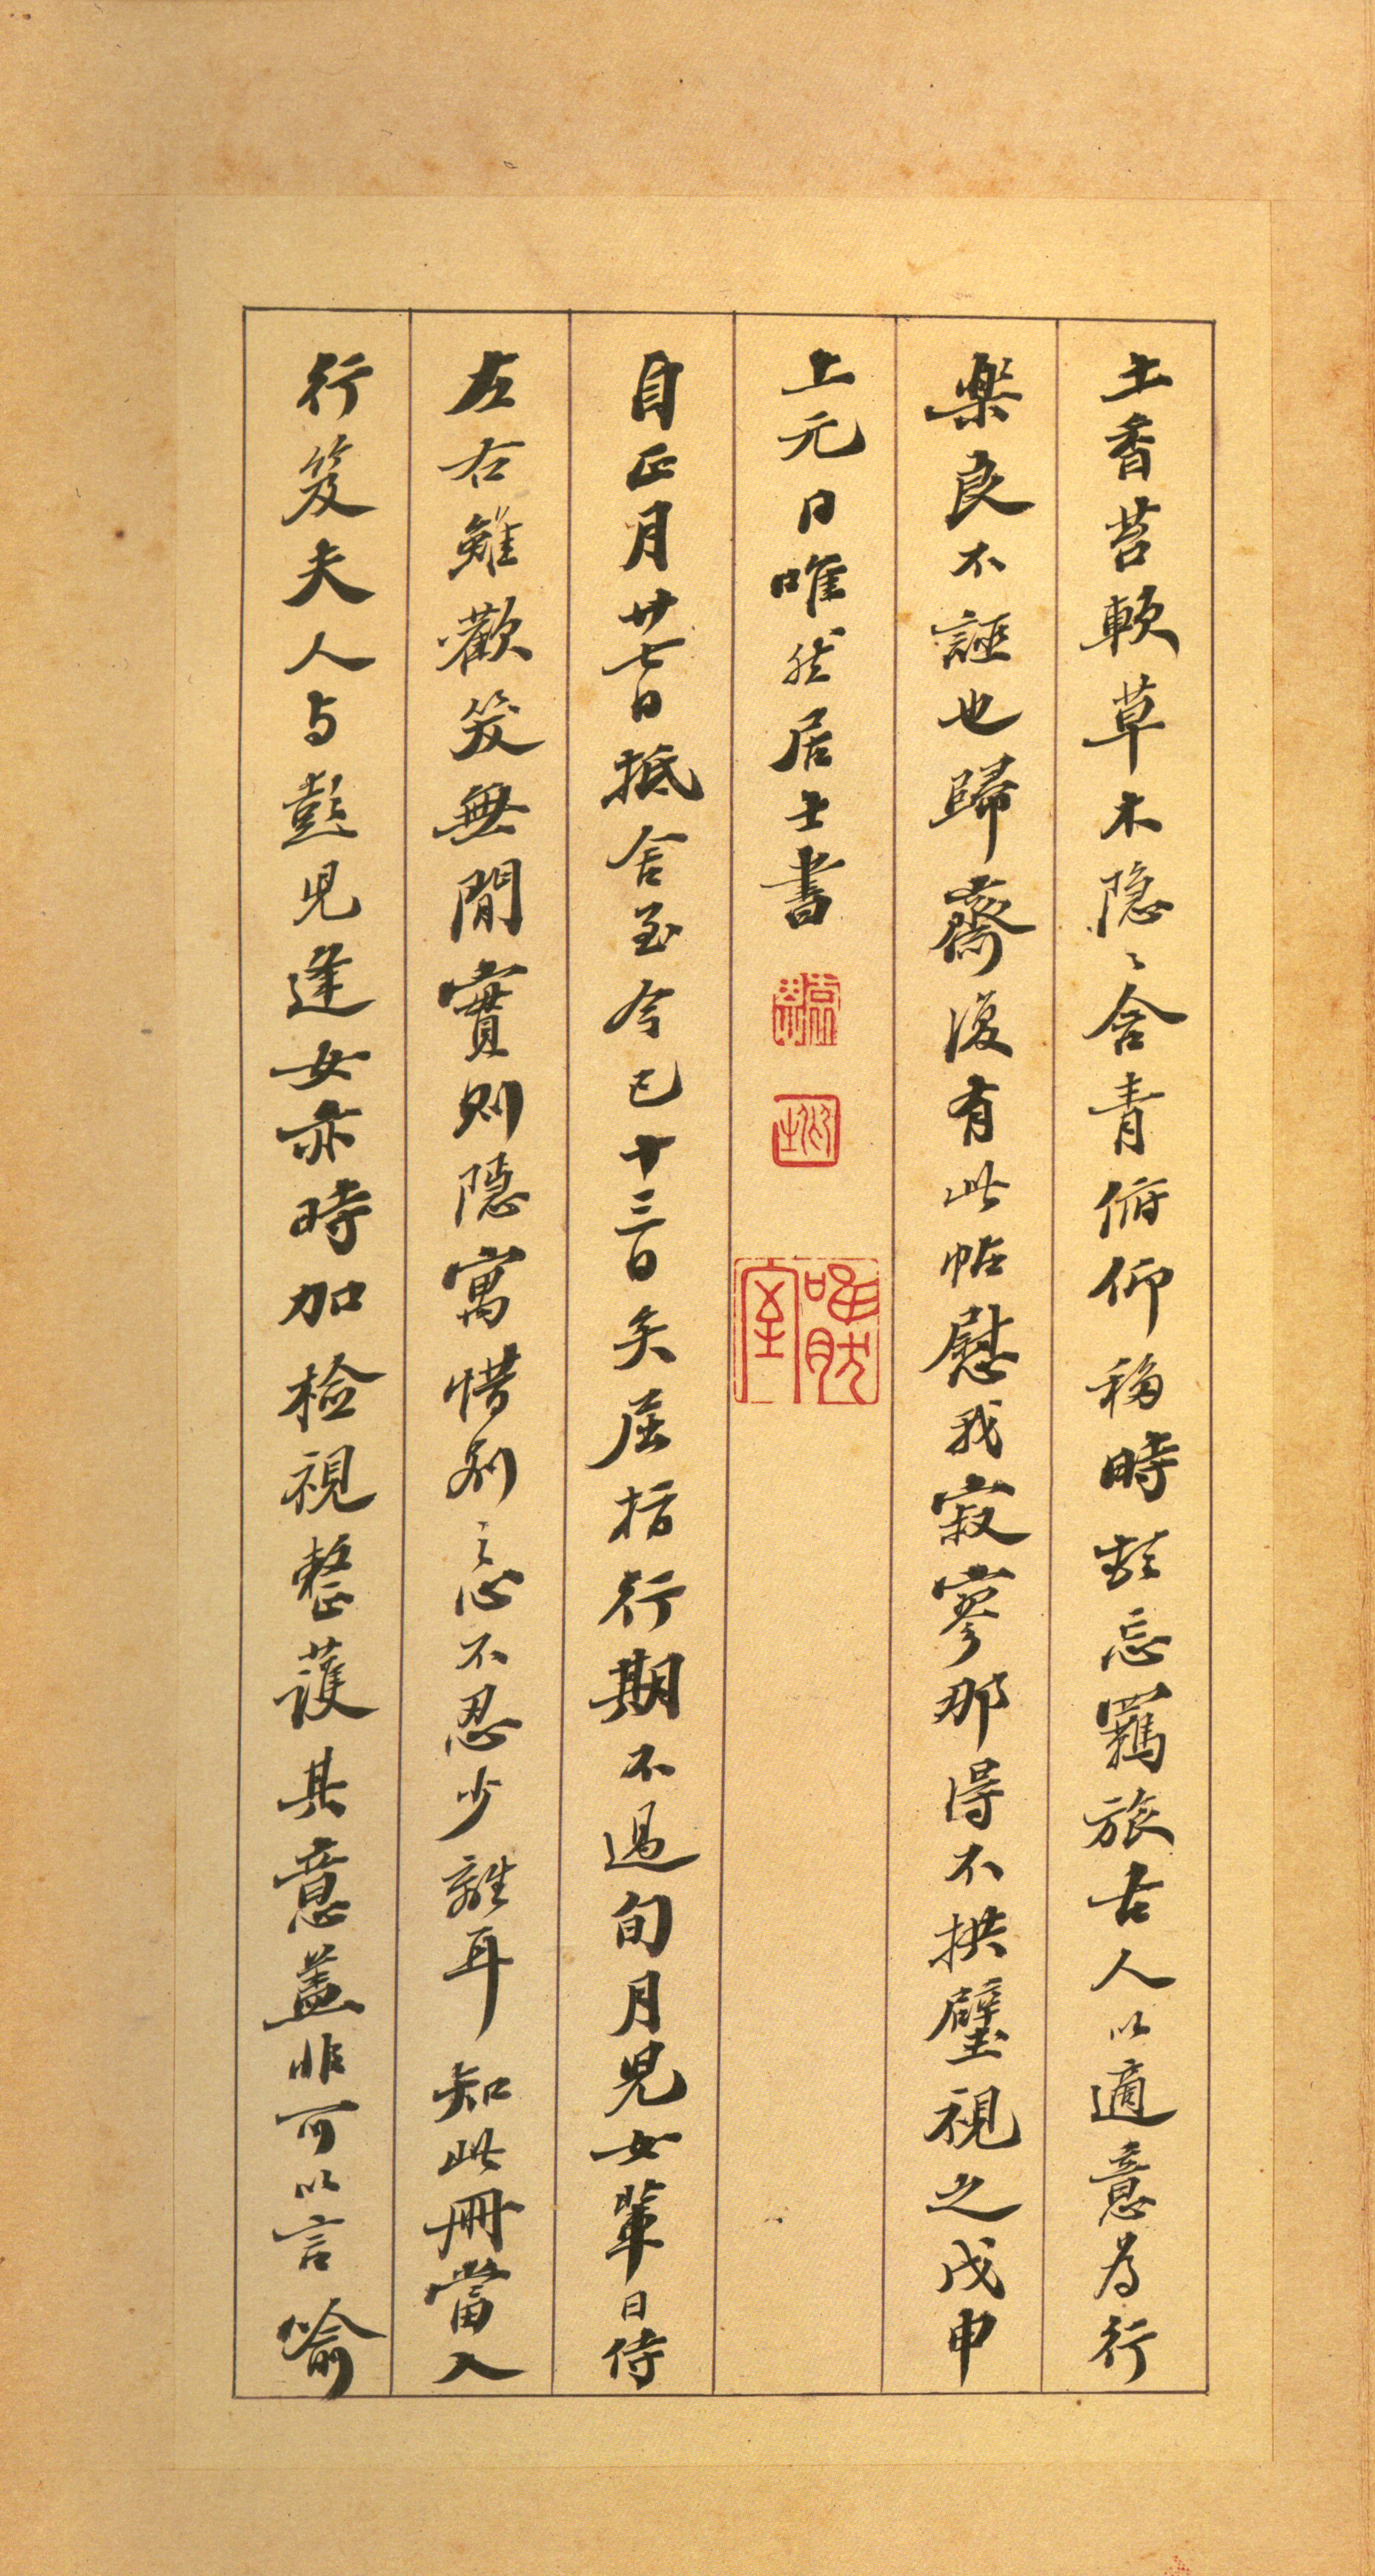 土香苔軟草木隐〻含青俯仰移時頓忘羈旅古人以適意為行
樂良不誣也歸齋復有此帖慰我寂寥那得不拱璧視之戊申
上元日唯然居士書
唯然室
自正月廿七日抵舍至今已十三日矣屈指行期不過旬月兒女輩日侍
左右雖歡笑無間實則隱寓惜別之心不忍少離耳知此冊當入
行笈夫人与彭兒逢女亦時加檢視整護其意盖非可以言喻